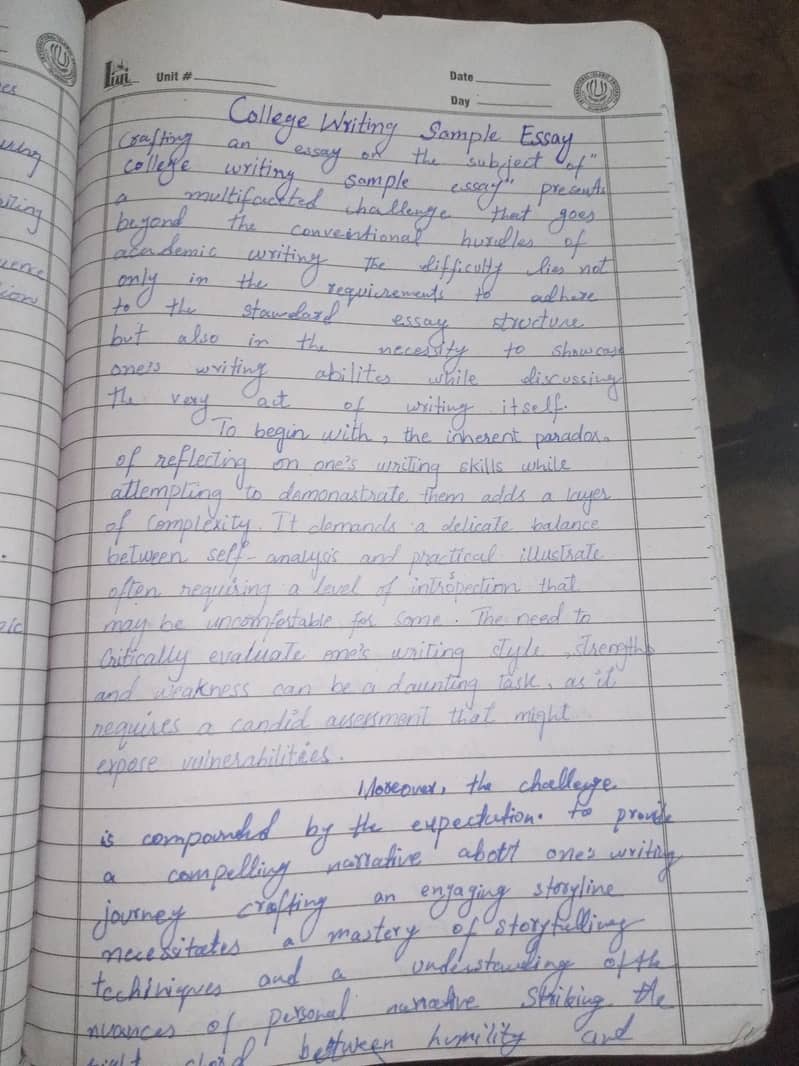 Unit #
Date
Day
College Writing Sample Essay
Crafting an essay on the subject of "
college writing sample essay" presents
a multifaceted challenge that goes
beyond the conventional hurdles of
academic writing The difficulty lies not
only in the requirements to adhere
to the standard essay structure
but also in the necessity to showcase
one's writing abilites while discussing
the very act of writing itself.
To begin with, the inherent paradox.
of reflecting on one's writing skills while
attempting to demonastrate them adds a layer
of complexity. It demands a delicate balance
between self-analysis and practical illustrate
often requiring a level of introspection that
may be uncomfortable for some. The need to
Critically evaluate one's writing style, strengths
and weakness can be a daunting task, as it
requires a candid assessment that might
expose vulnerabilities.
Moreover, the challenge
is compounded by the expectation. to provide
a compelling narrative abott one's writing
journey crafting an engaging storyline
necessitates a mastery of storytelling
techiniques and a understanding of the
nuances of personal narrative Striking the
between humility and
ces
using
iting
ence
ion